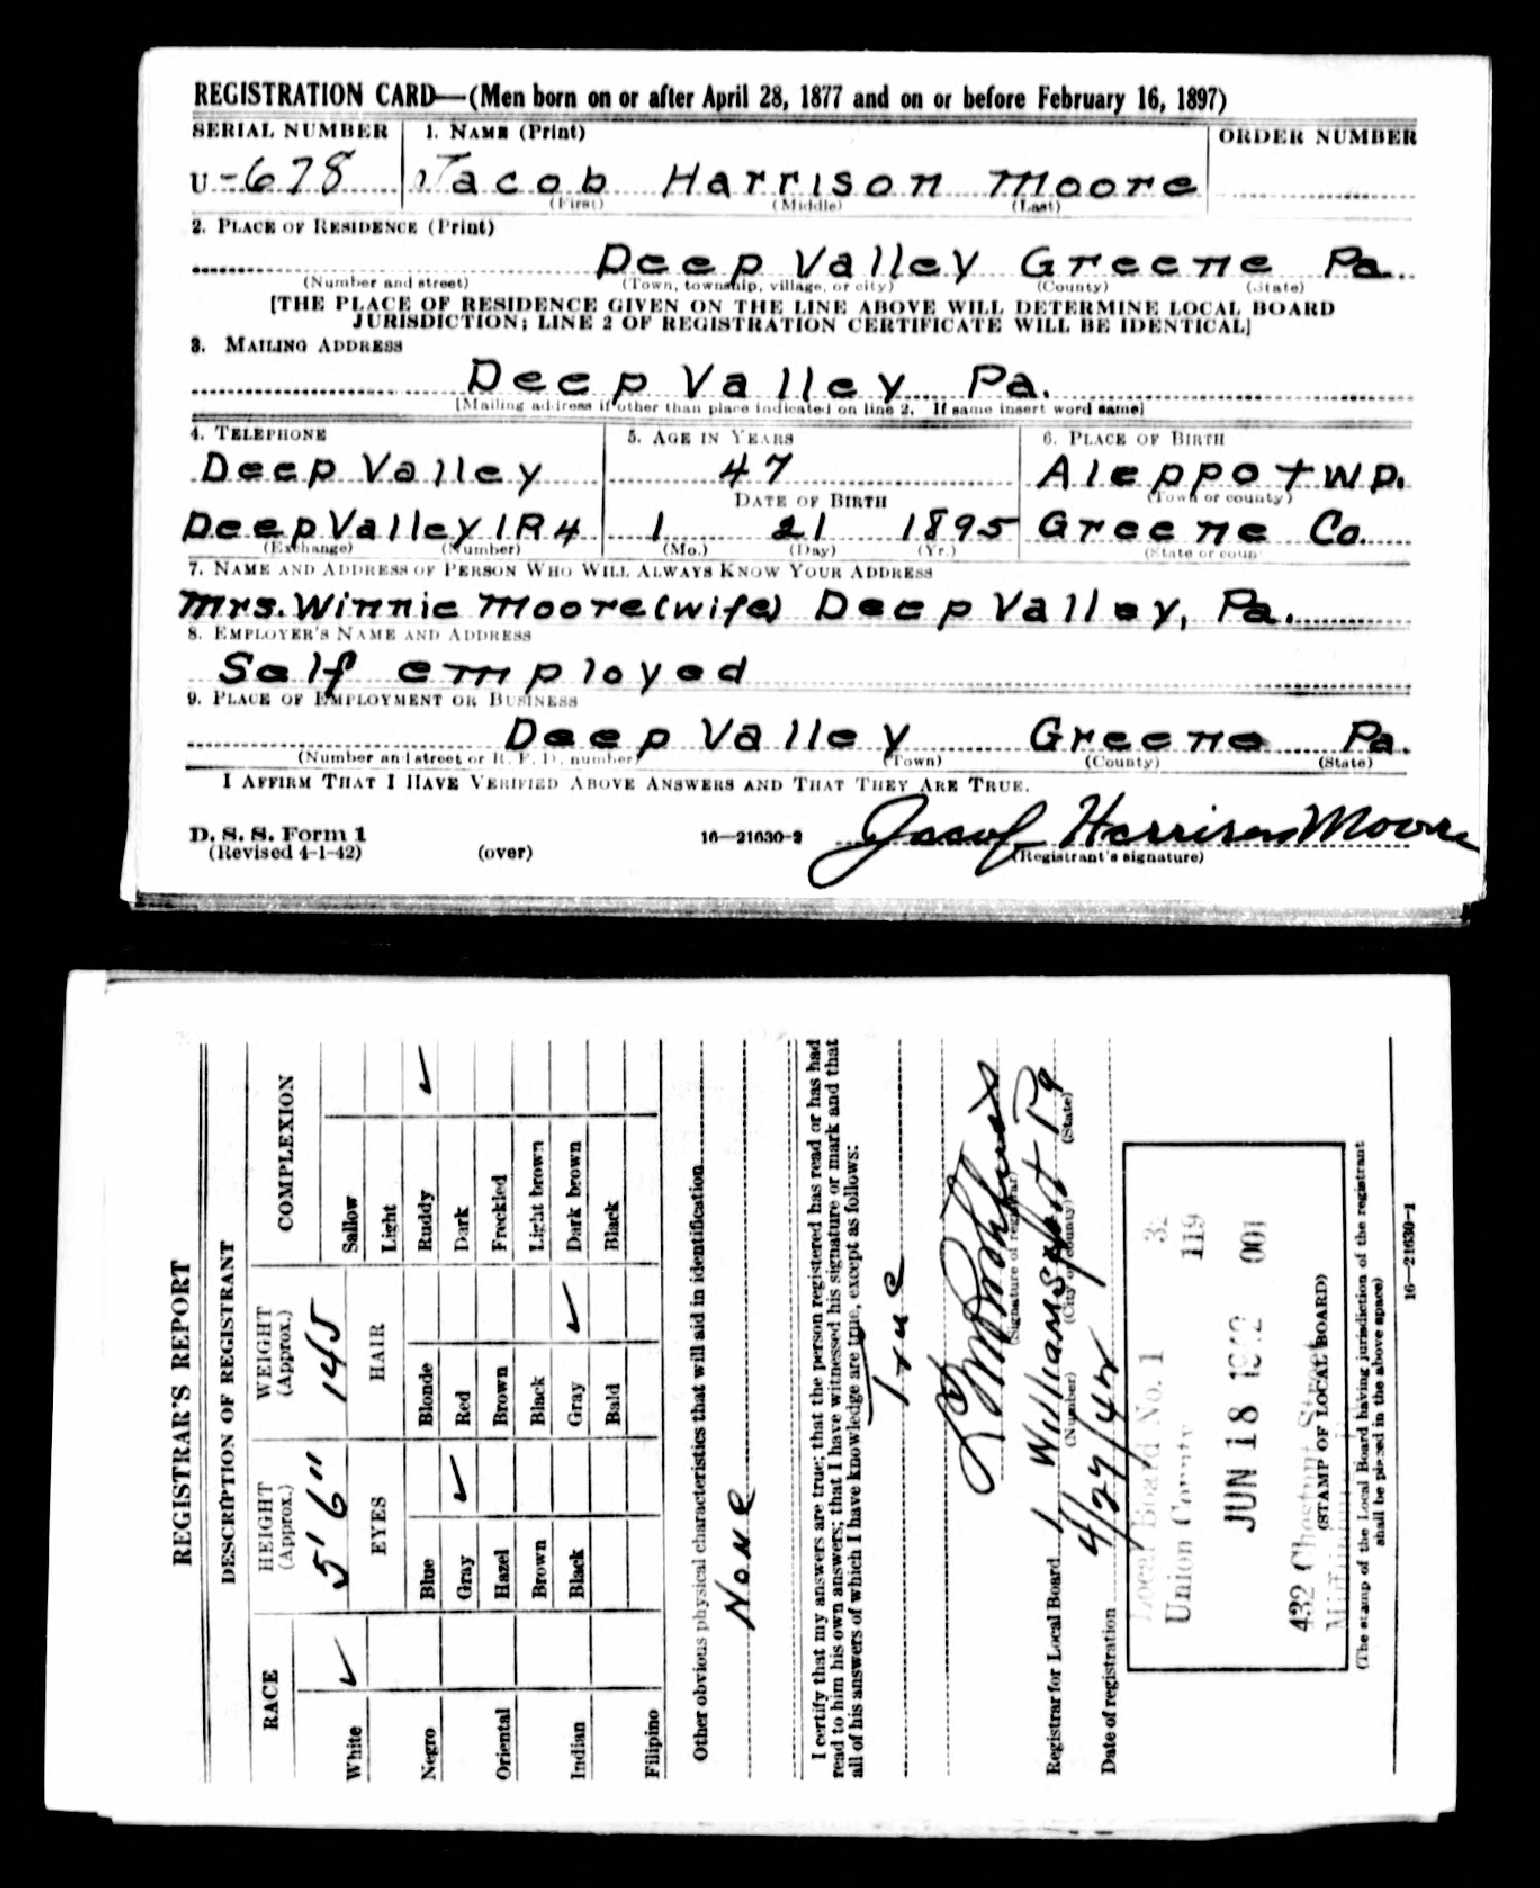 REGISTRATION CARD—(Men born on or after April 28, 1877 and on or before February 16, 1897)
SERIAL NUMBER 1. NAME (Print) ORDER NUMBER
U-678 Jacob Harrison Moore
(First) (Middle) (Last)
2. PLACE OF RESIDENCE (Print)
Deep Valley Greene Pa.
(Number and street) (Town, township, village, or city) (County) (State)
[THE PLACE OF RESIDENCE GIVEN ON THE LINE ABOVE WILL DETERMINE LOCAL BOARD
JURISDICTION; LINE 2 OF REGISTRATION CERTIFICATE WILL BE IDENTICAL]
3. MAILING ADDRESS
Deep Valley Pa.
[Mailing address if other than place indicated on line 2. If same insert word same]
4. TELEPHONE 5. AGE IN YEARS 6. PLACE OF BIRTH
Deep Valley 47 Aleppo twp.
DATE OF BIRTH (Town or county)
Deep Valley 1R4 1 21 1895 Greene Co.
(Exchange) (Number) (Mo.) (Day) (Yr.) (State or coun
7. NAME AND ADDRESS OF PERSON WHO WILL ALWAYS KNOW YOUR ADDRESS
Mrs. Winnie Moore (wife) Deep Valley, Pa.
8. EMPLOYER'S NAME AND ADDRESS
Self employed
9. PLACE OF EMPLOYMENT OR BUSINESS
Deep Valley Greene Pa.
(Number and street or R. F. D. number) (Town) (County) (State)
I AFFIRM THAT I HAVE VERIFIED ABOVE ANSWERS AND THAT THEY ARE TRUE.
D. S. S. Form 1 16—21630-2 Jacob Harrison Moore
(Revised 4-1-42) (over) (Registrant's signature)
REGISTRAR'S REPORT
DESCRIPTION OF REGISTRANT
RACE HEIGHT (Approx.) WEIGHT (Approx.) COMPLEXION
5' 6" 145
White ✓ EYES HAIR Sallow
Light
Negro Blue Blonde Ruddy ✓
Gray ✓ Red Dark
Oriental Hazel Brown Freckled
Brown Black Light brown
Indian Black Gray ✓ Dark brown
Bald Black
Filipino
Other obvious physical characteristics that will aid in identification
None
I certify that my answers are true; that the person registered has read or has had
read to him his own answers; that I have witnessed his signature or mark and that
all of his answers of which I have knowledge are true, except as follows:
true
(Signature of registrar)
Registrar for Local Board 1 Williamsport Pa
(Number) (City or county) (State)
Date of registration 4/27/42
Local Board No. 1 3
Union County 119
JUN 18 1942 001
432 Chestnut Street
(STAMP OF LOCAL BOARD)
(The stamp of the Local Board having jurisdiction of the registrant
shall be placed in the above space)
16—21630-1